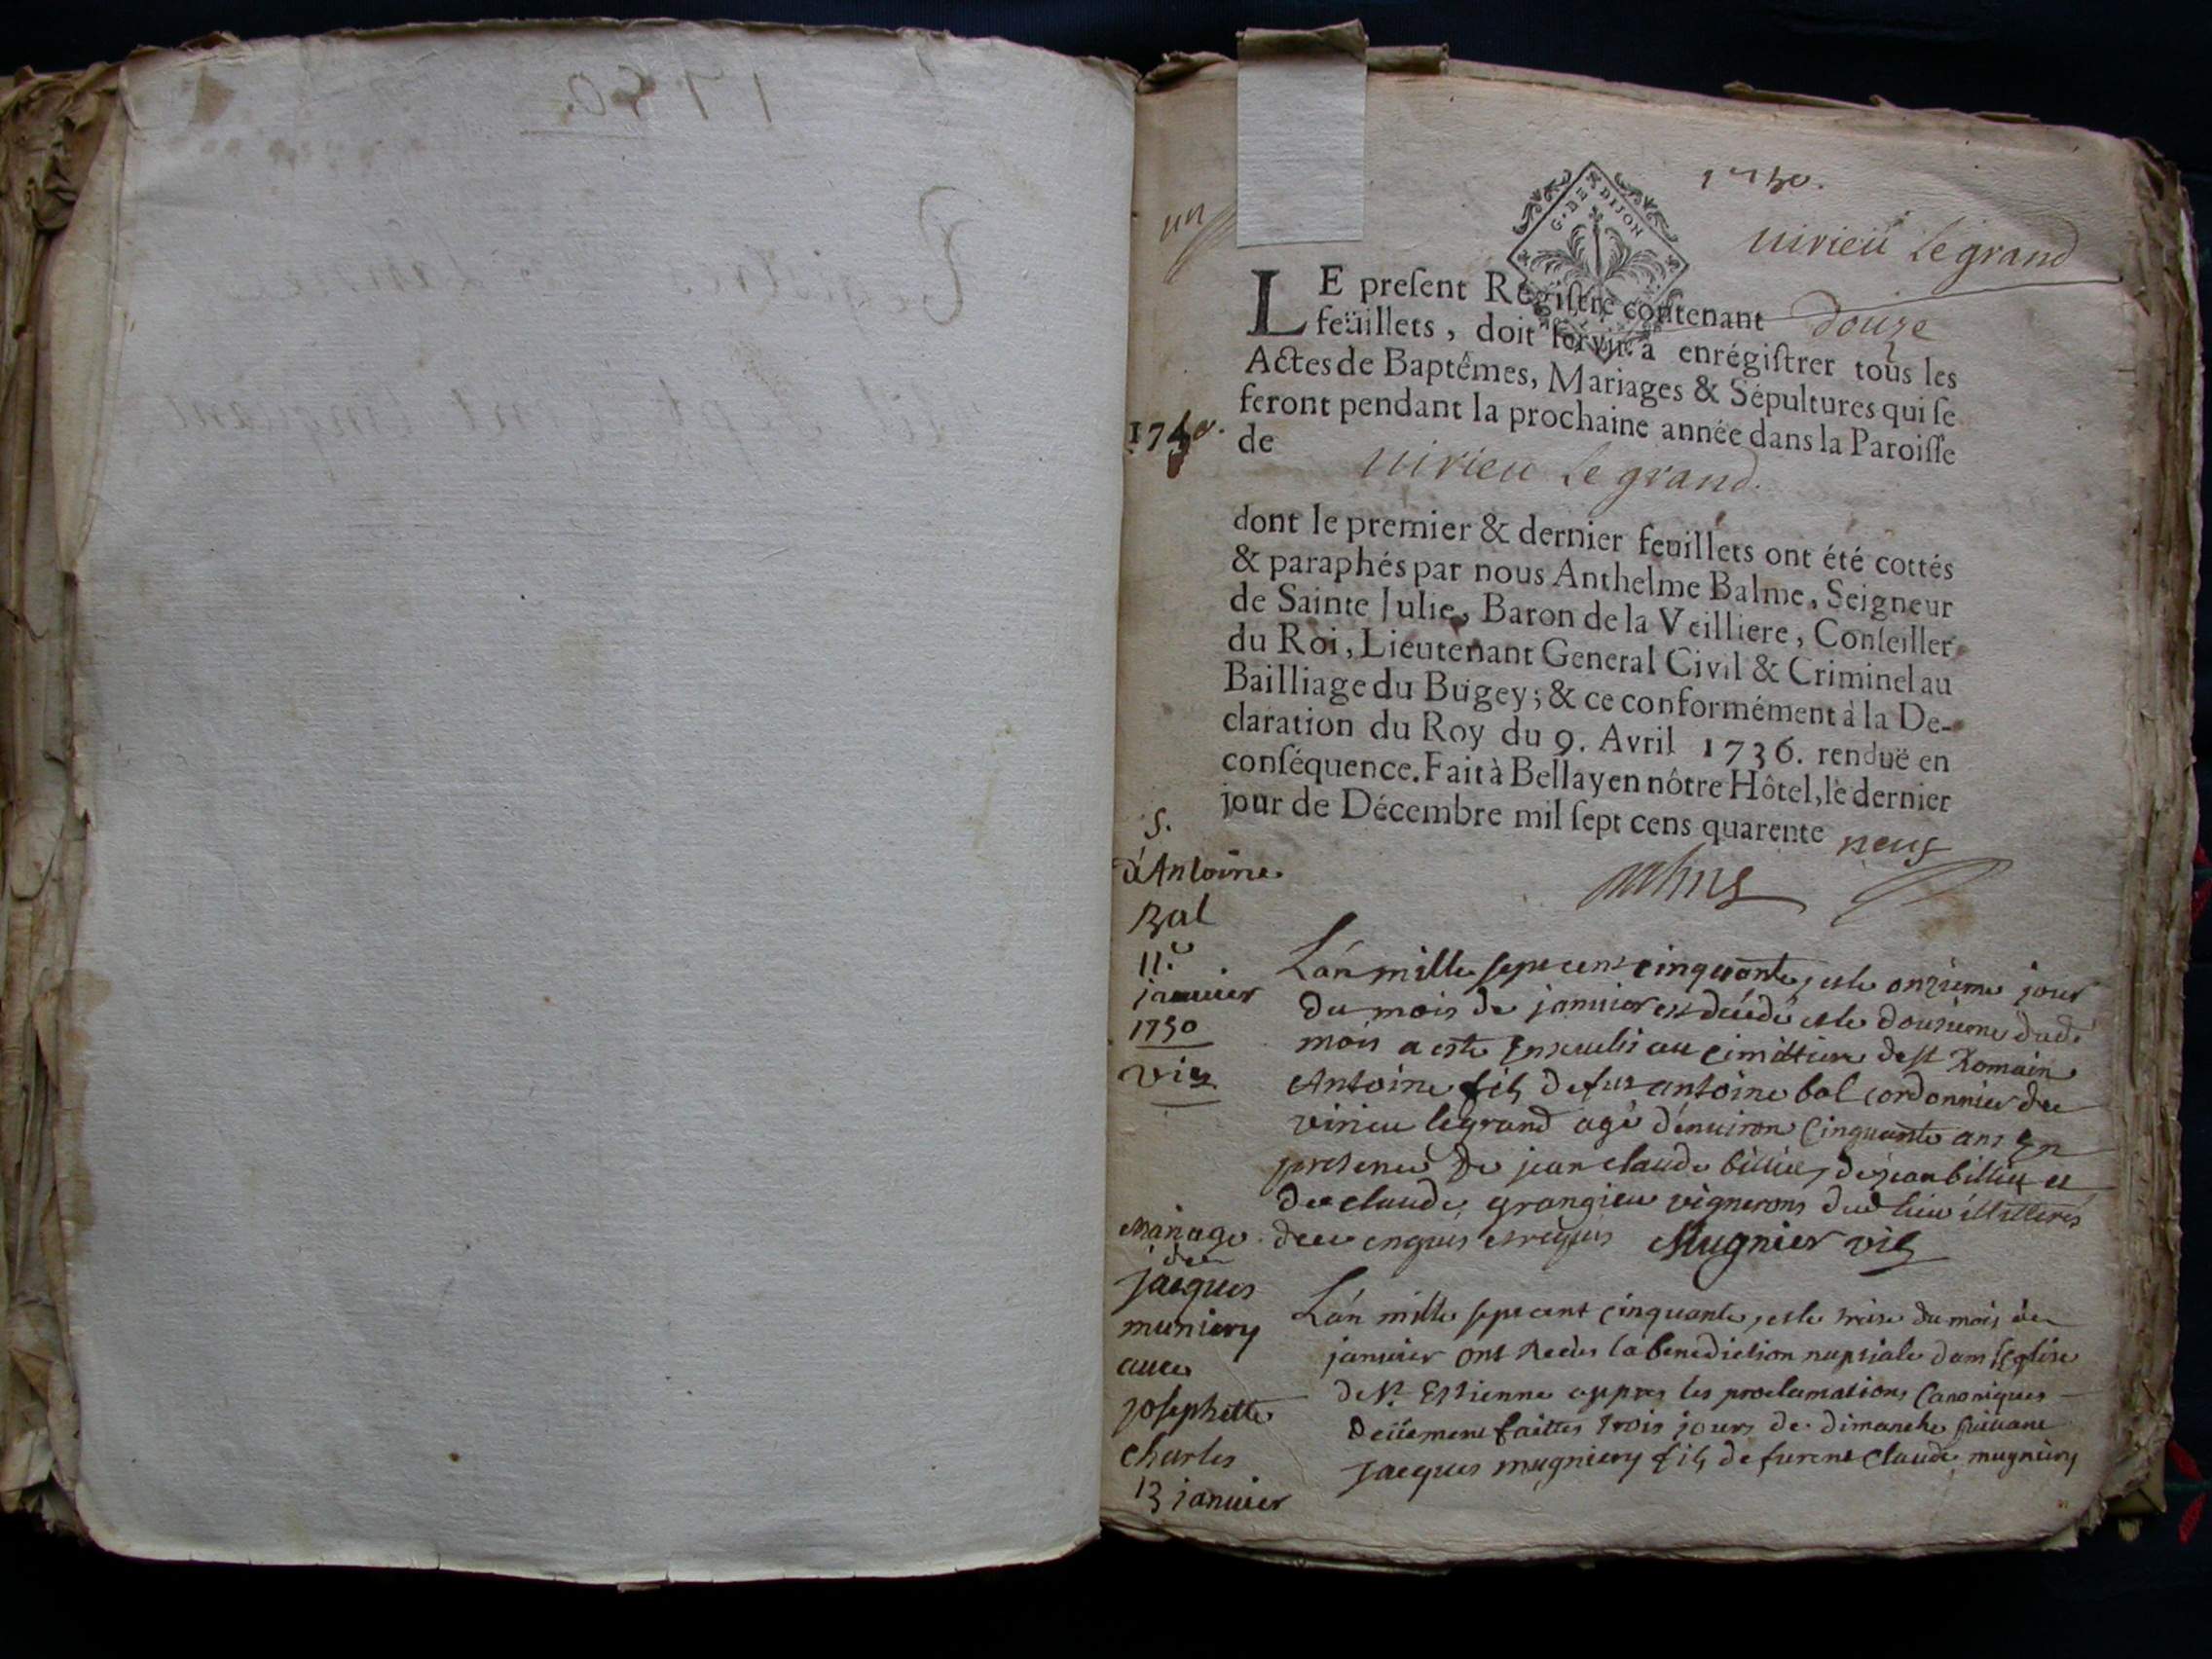 1750.
un
G. DE DIJON
virieu le grand
LE preſent Régiſtre contenant douze
feüillets, doit ſervir à enrégiſtrer tous les
Actes de Baptêmes, Mariages & Sépultures qui ſe
feront pendant la prochaine année dans la Paroiſſe
de virieu le grand.
1750.
dont le premier & dernier feuillets ont été cottés
& paraphés par nous Anthelme Balme, Seigneur
de Sainte Julie, Baron de la Veilliere, Conſeiller
du Roi, Lieutenant General Civil & Criminel au
Bailliage du Bugey; & ce conformément à la De-
claration du Roy du 9. Avril 1736. renduë en
conſéquence. Fait à Bellay en nôtre Hôtel, le dernier
jour de Décembre mil ſept cens quarente neuf
S.
d'Antoine
Bal
11.e
januier
1750
vig
L'an mille sept cent cinquante, et le onzieme jour
du mois de januier est décédé et le douzieme dud.
mois a esté enseueli au cimittiere de st Romain
Antoine fils de fut antoine bal cordonnier de
virieu legrand agé d'enuiron cinquante ans en
presence de jean claude billiet, de jean billiet et
de claude grangieu vignerons dud lieu illitterés
de ce enquis et requis Mugnier vic
Mariage
de
jacques
muniery
auec
josephette
charles
13 januier
L'an mille sept cent cinquante, et le treise du mois de
januier ont Receu la benediction nuptiale dans l'eglise
de st. Estienne appres les proclamations canoniques
deüement faittes trois jours de dimanche suiuant
jacques mugniery fils de furent claude mugniery